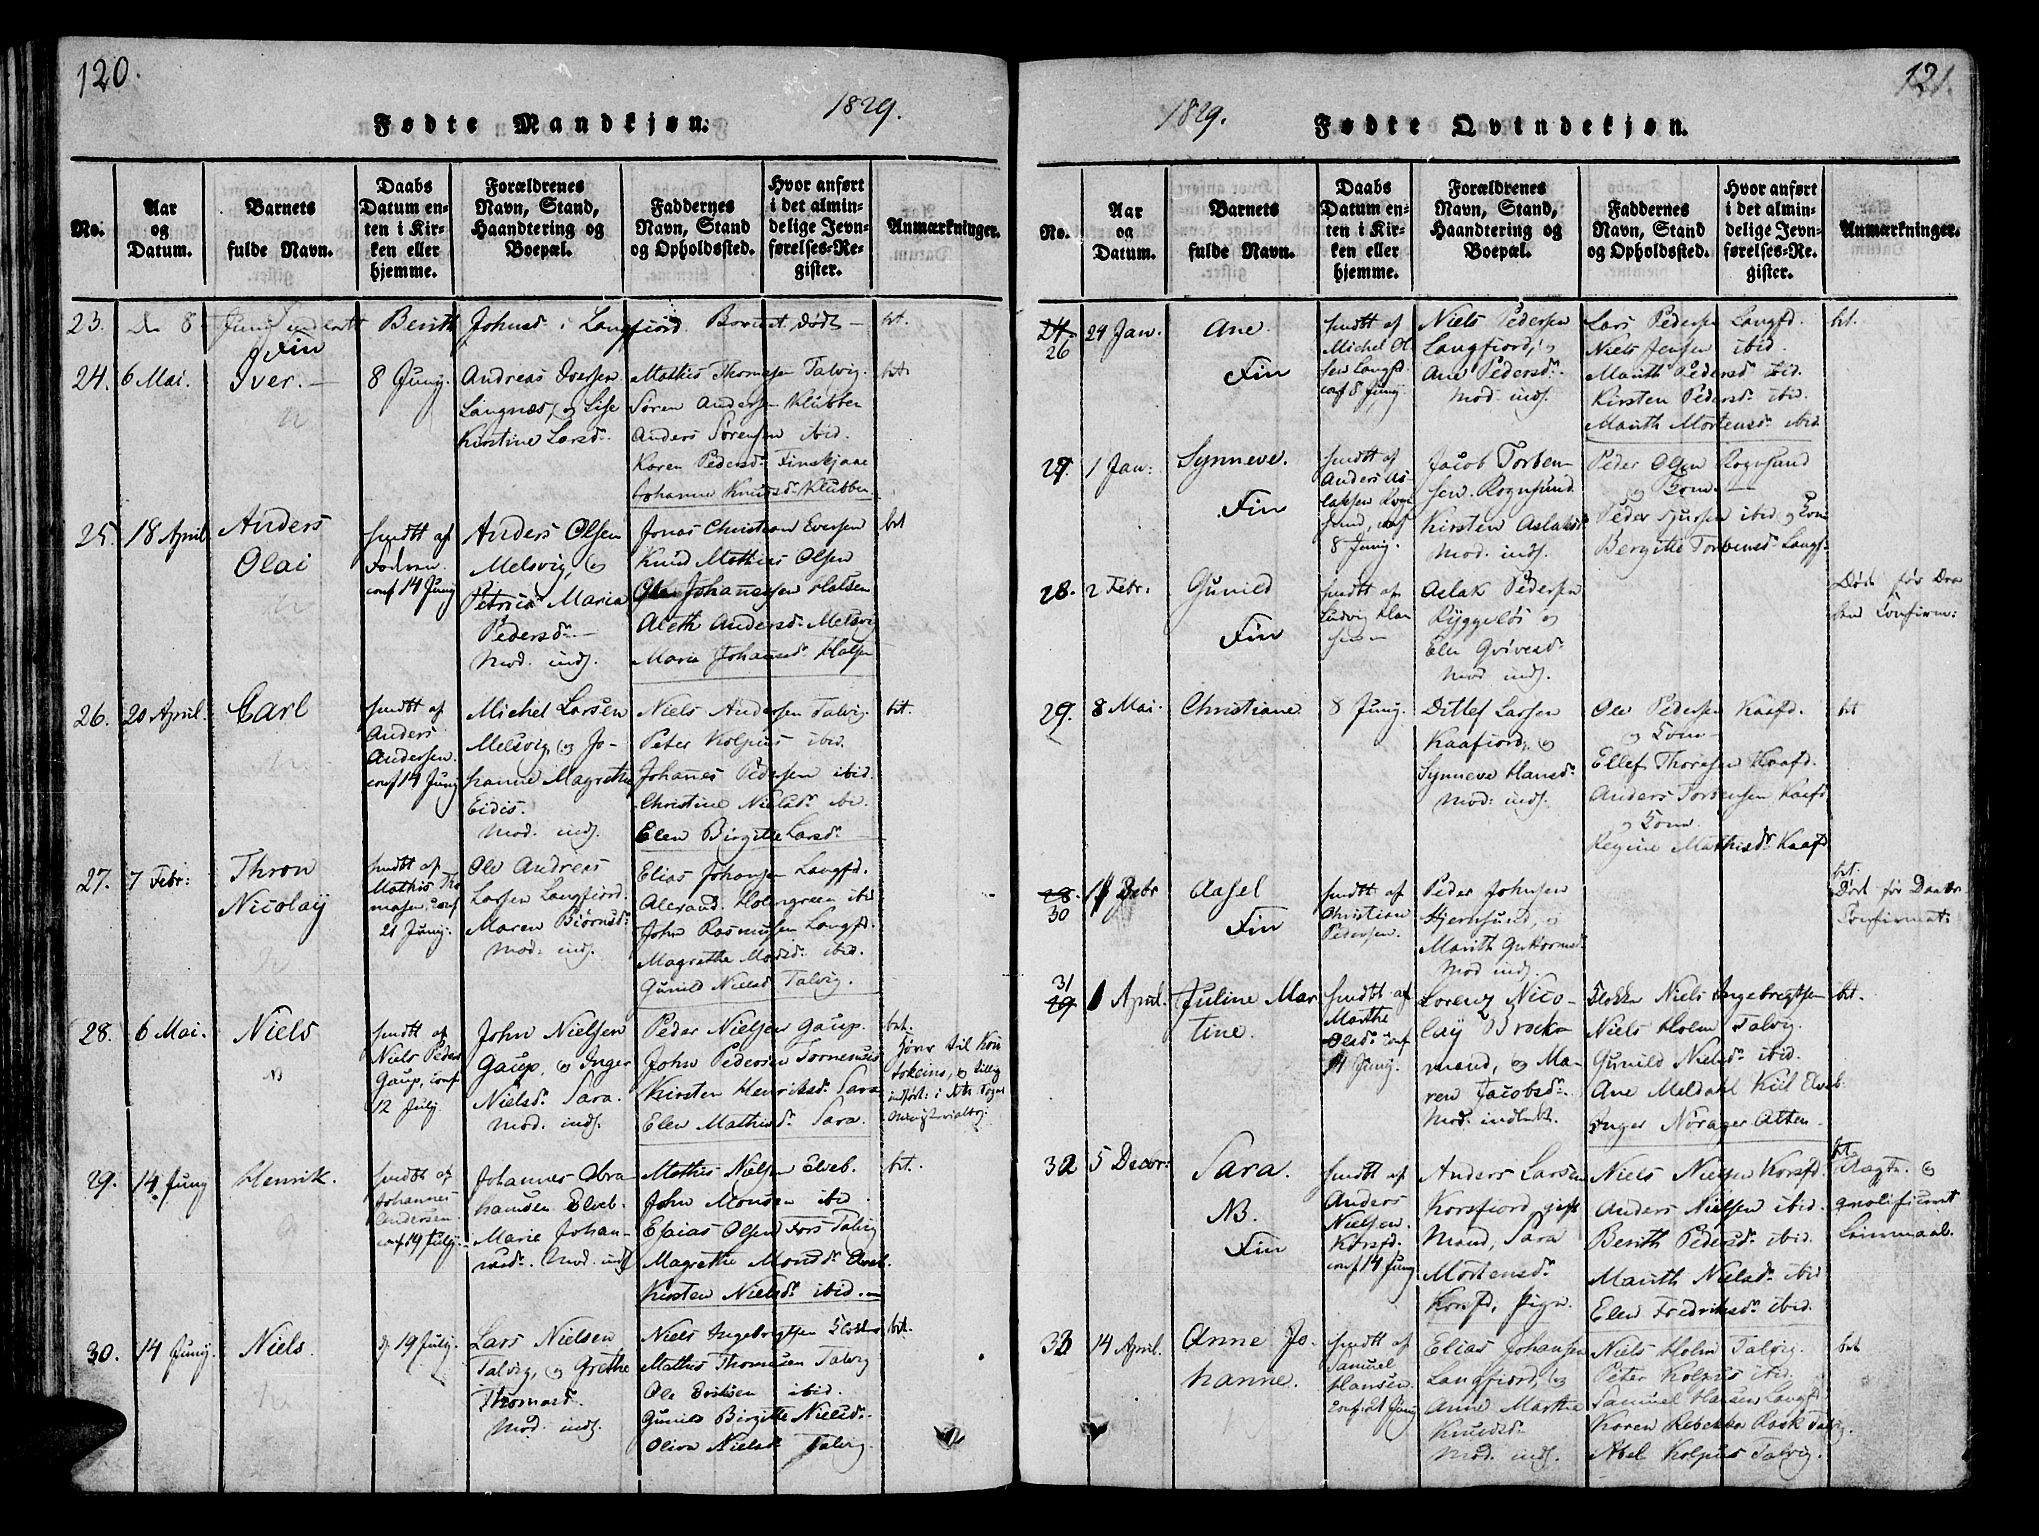 120.
Fødte Mandkjøn.
1829.
No.
Aar
og
Datum.
Barnets
fulde Navn.
Daabs
Datum en-
ten i Kir-
ken eller
hjemme.
Forældrenes
Navn, Stand,
Haandtering og
Boepæl.
Faddernes
Navn, Stand
og Opholdssted.
Hvor anført
i det almin-
delige Jevn-
førelses-Re-
gister.
Anmærkninger.
23. 8 Juny Berith Johnsd. i Langfjord
bet.
24. 6 Mai.
Fin
Iver.
8 Juny.
Andreas Iversen
Langnæs, og Lise
Kirstine Larsd.
Mathis Thomesen Talvig.
Søren Andersen Klubben
Anders Sørensen ibid.
Karen Pedersd. Finskjaae
Johanne Knudsd. Klubben
bet.
25. 18 April
Anders
Olai
hmdt af
conf 14 Juny
Anders Olsen
Melsvig, og
Petrica Maria
Pedersd.
Mod. inds.
Jonas Christian Eversen
Knud Mathias Olsen
Johannesen Halsen
Aleth Andersd. Melsvig
Marie Johansd. Halsen
bet
26. 20 April.
Carl
hmdt af
Anders
Andersen.
conf 14 Juny
Michel Larsen
Melsvig, og Jo-
hanne Magrethe
Eidis.
Mod. inds.
Niels Andersen Talvig.
Peter Kolpus ibid.
Johannes Pedersen ibid.
Christine Nielsd. ibid.
Elen Birgitte Larsd.
bet.
27. 7 Febr:
Thron
Nicolay
hmdt af
Mathis Tho
masen. conf
21 Juny.
Ole Andreas
Larsen Langfiord.
Maren Biørnsd.
Mod. inds.
Elias Johansen Langfd.
Alexand. Holmgreen ibid
John Rasmusen Langfd.
Magrethe Madsd. ibid.
Gunild Nielsd Talvig.
28. 6 Mai.
Niels
hmdt af
Niels Peders
Gaup, conf
12 July
John Nielsen
Gaup, og Inger
Nielsd. Sara.
Mod. inds.
Peder Nielsen Gaup.
John Pedersen Tornensis
Kirsten Henriksd. Sara
Elen Mathisd. Sara
bet.
hører til Kou
tokeino, og
indført i
29. 14 Juny
Henrik.
hmdt af
Johannes
Andersen.
conf 19 July.
Johannes Abra
hamsen Elveb.
Marie Johan-
nesd. Mod. inds
Mathis Nielsen Elveb.
John Monsen ibid.
Esaias Olsen Fors Talvig
Magrethe Monsd. Elveb.
Kirsten Nielsd. ibid.
bet.
30. 14 Juny.
Niels.
19 July.
Lars Nielsen
Talvig, og Grethe
Thomasd.
Mod. inds.
Niels Ingebrigtsen Klokker
Mathis Thomesen Talvig
Ole ibid.
Gunild Birgitte Nielsd.
Oliva Nielsd. Talvig.
bet.
121.
1829.
Fødte Qvindekjøn.
No.
Aar
og
Datum.
Barnets
fulde Navn.
Daabs
Datum en-
ten i Kir-
ken eller
hjemme.
Forældrenes
Navn, Stand,
Haandtering og
Boepæl.
Faddernes
Navn, Stand
og Opholdssted.
Hvor anført
i det almin-
delige Jevn-
førelses-Re-
gister.
Anmærkninger.
24.
26
24 Jan.
Ane.
Fin
hmdt af
Michel Ol
sen Langfd.
conf 8 Juny.
Niels Pedersen
Langfiord, og
Ane Pedersd.
Mod. inds.
Lars Pedersen Langfd.
Niels Jensen ibid.
Marith Pedersd ibid.
Kirsten Pedersd. ibid.
Marith Mortensd. ibid
bet.
27. 1 Jan:
Synneve.
Fin
hmdt af
Anders As
laksen Rogn
sund, conf
8 Juny.
Jacob Torben-
sen. Rognsund.
Kirsten Aslaksd
Mod. inds.
Peder Olsen Rognsund
og Kone.
Peder ibid. og Kone
Bergithe Torbensd. Langf.
28. 2 Febr:
Gunild
Fin
hmdt af
Ludvig Han
sen
Aslak Pedersen
Ryggeløs og
Elen
Mod inds.
Død før Daa
bens Confirm:
29. 8 Mai.
Christiane.
8 Juny.
Ditlef Larsen
Kaafiord, og
Synneve Hansd.
Mod: inds.
Ole Pedersen Kaafd.
og Kone
Ellef Thoresen Kaafd.
Anders Torbensen Kaafd
og Kone.
Regine Mathisd. Kaafd
bet
28.
30
Aasel
Fin
hmdt af
Christian
Pedersen.
Peder Johnsen
Hjernsund, og
Marith Guttormsd.
Mod inds.
bet.
Død før Daabs
Confirmat:
31
29.
1 April.
Juline Mar
tine.
hmdt af
Marthe
Olsd. conf
14 Juny.
Lorenz Nico-
lay Brock-
mand, og Ma-
ren Jacobsd.
Mod. inds. bet.
Klokker Niels Ingebrigtsen
Niels Holm Talvig.
Gunild Nielsd. ibid.
Ane Meldahl Kiil Elveb.
Inger Norager Alten
bet.
32 5 Decbr:
Sara.
NB.
Fin
hmdt af
Anders
Nielsen.
Korsfd.
conf 14 Juny
Anders Larsen
Korsfiord, gift
Mand, Sara
Mortensd.
Korsfd, Pige.
Niels Nielsen Korsfd.
Anders Nielsen ibid.
Berith Pedersd. ibid.
Marith Nielsd. ibid
Elen Fredriksd. ibid.
bet.
Uægte. og
qvalificeret
Leiermaal.
33 14 April.
Anne Jo-
hanne.
hmdt af
Samuel
Hansen.
conf 21 Juny
Elias Johansen
Langfiord, og
Anne Marthe
Knudsd.
Mod. inds.
Niels Holm Talvig.
Peter Kolpus ibid.
Samuel Hansen Langfd
Karen Rebekka Rask Talvig.
Abel Kolpus Talvig.
bet